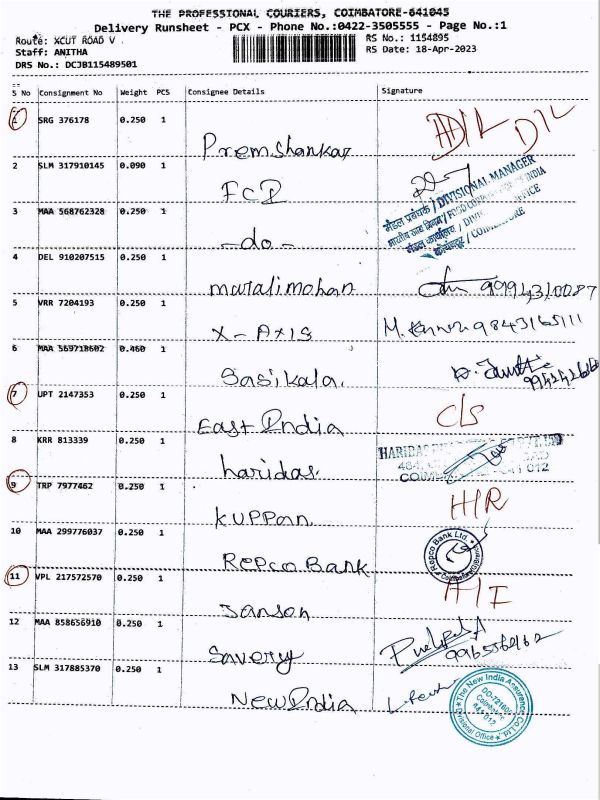 THE PROFESSIONAL COURIERS, COIMBATORE-641045
Delivery Runsheet - PCX - Phone No.:0422-3505555 - Page No.:1
Route: XCUT ROAD V
RS No.: 1154895
Staff: ANITHA
RS Date: 18-Apr-2023
DRS No.: DCJB115489501
S No Consignment No Weight PCS Consignee Details Signature
1 SRG 376178 0.250 1
Premshankar D/L D/L
2 SLM 317910145 0.090 1
FCI
मंडल प्रबंधक / DIVISIONAL MANAGER
भारतीय खाद्य निगम / FOOD CORPORATION OF INDIA
मंडल कार्यालय / DIVISIONAL OFFICE
कोयंबत्तूर / COIMBATORE
3 MAA 568762328 0.250 1
-do-
4 DEL 910207515 0.250 1
muralimohan 9994310087
5 VRR 7204193 0.250 1
X-AXIS M. 9843165111
6 MAA 569718602 0.460 1
Sasikala.
7 UPT 2147353 0.250 1
East India C/S
8 KRR 813339 0.250 1
haridas HARIDAS
COIMBATORE 641 012
9 TRP 7977462 0.250 1
Kuppan H/R
10 MAA 299776037 0.250 1
Repco Bank Repco Bank Ltd.
11 VPL 217572570 0.250 1
Janson H/I
12 MAA 858656910 0.250 1
Savery
13 SLM 317885370 0.250 1
New India
The New India Assurance Co. Ltd.
Coimbatore
641 012
Divisional Office